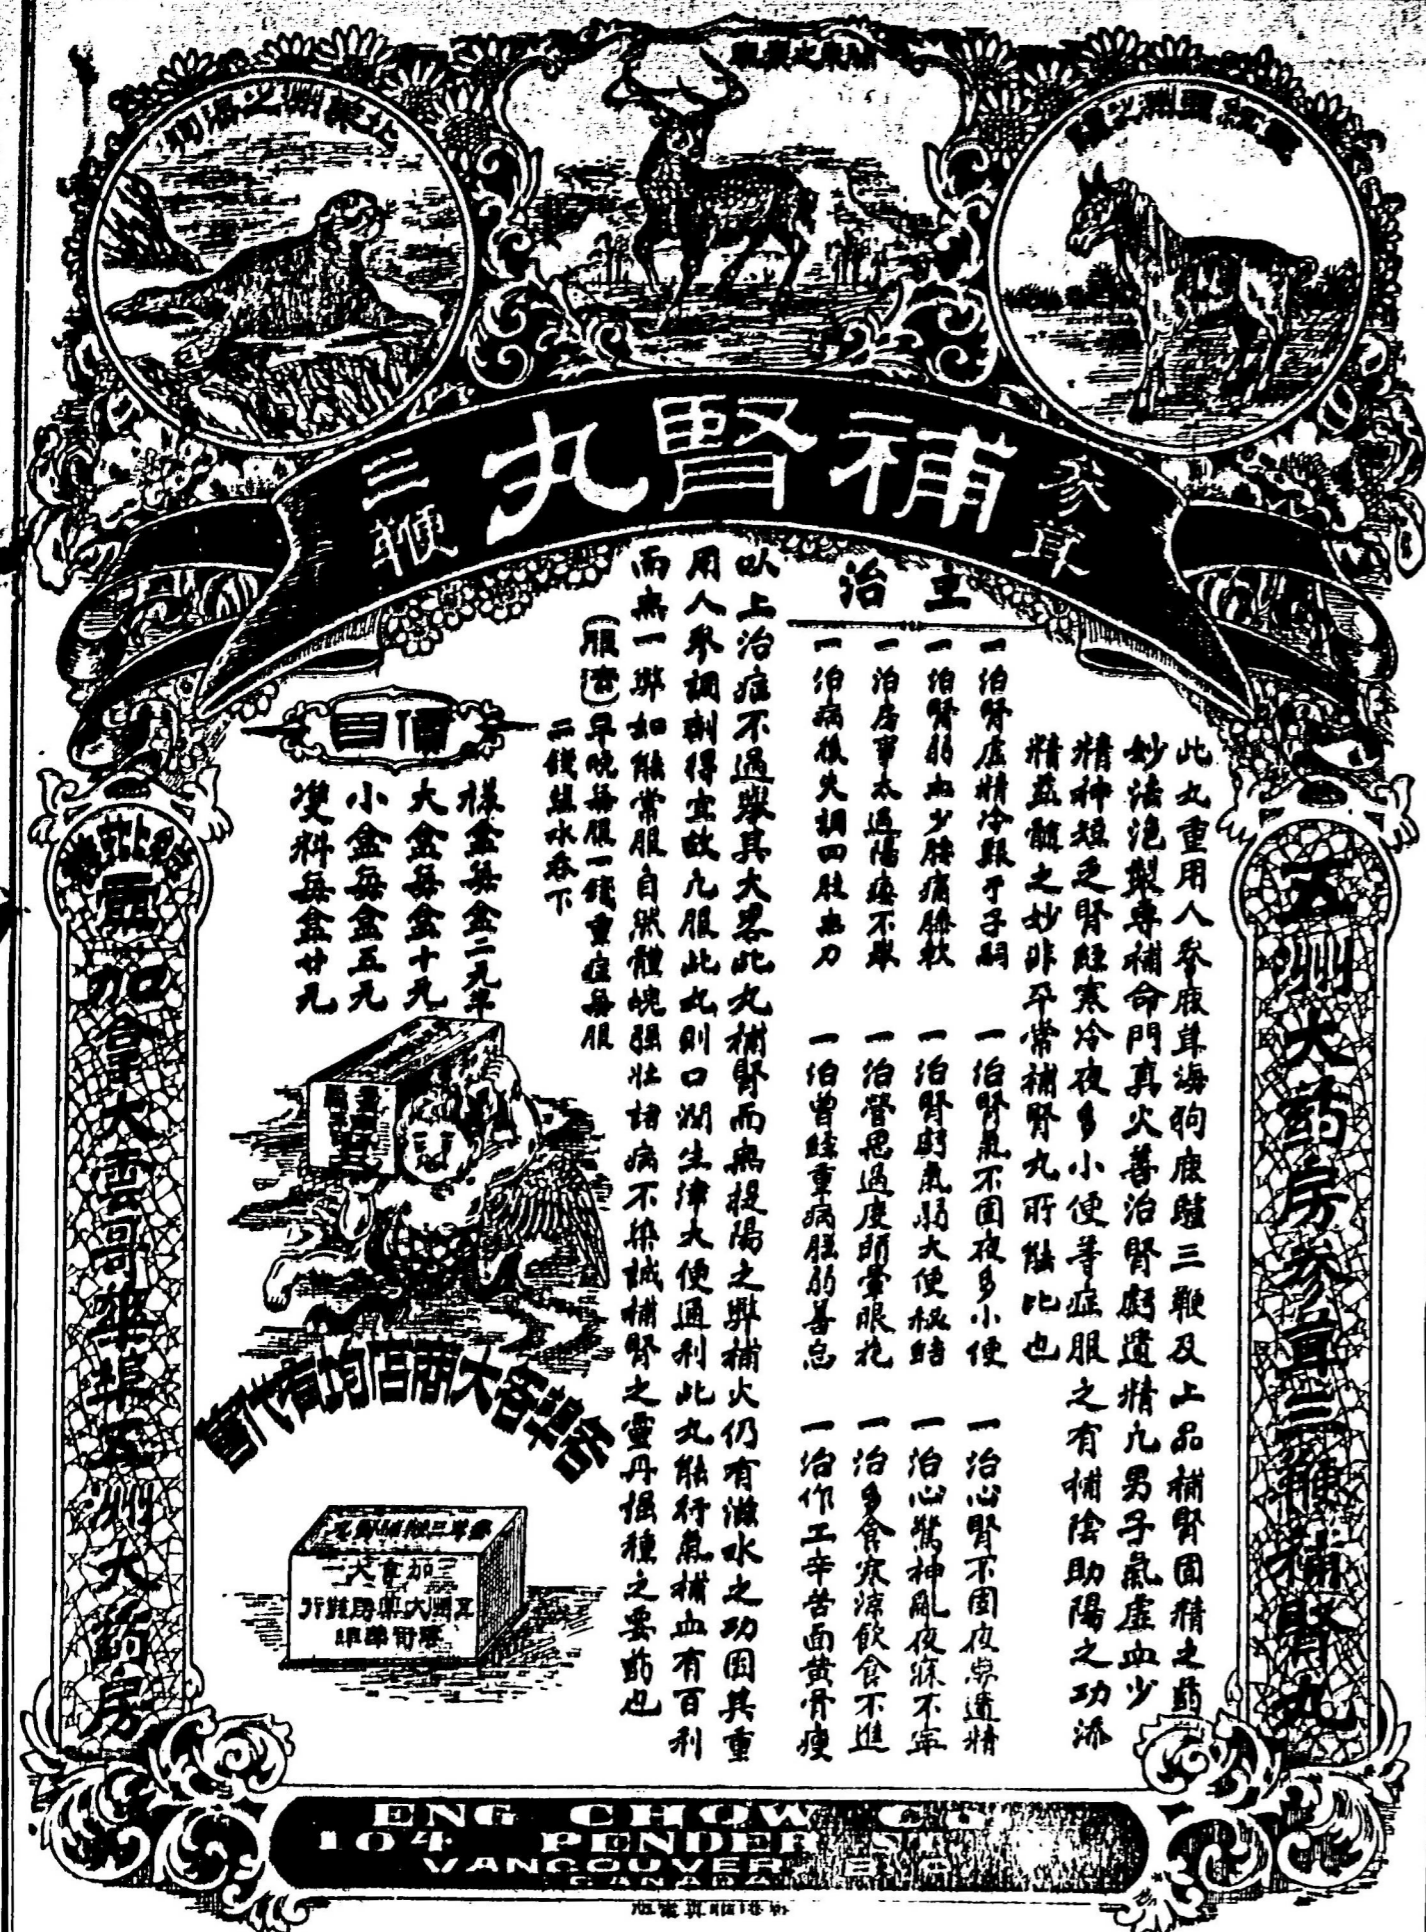 參茸
補腎丸
三鞭
五洲大药房參茸三鞭補腎丸
此丸重用人參鹿茸海狗鹿驢三鞭及上品補腎固精之药
妙法泡製專補命門真火善治腎虧遺精凡男子氣虛血少
精神短乏腎經寒冷夜多小便等症服之有補陰助陽之功添
精益髓之妙非平常補腎丸所能比也
主治
一治腎虛精冷艱于子嗣
一治腎氣不固夜多小便
一治心腎不固夜夢遺精
一治腎弱血少腰痛膝軟
一治腎虧氣弱大便秘結
一治心驚神亂夜寐不寧
一治房事太過陽痿不舉
一治營思過度頭暈眼花
一治多食寒涼飲食不進
一治病後失調四肢無力
一治曾經重病胆弱善忘
一治作工辛苦面黃骨瘦
以上治症不過舉其大畧此丸補腎而無提陽之弊補火仍有滋水之功因其重
用人參調劑得宜故凡服此丸則口潤生津大便通利此丸能行氣補血有百利
而無一弊如能常服自然體魄强壯諸病不染誠補腎之靈丹掹種之要药也
(服法)早晚每服一錢重症每服
二錢滾水吞下
價目
樣盒每盒二元半
大盒每盒十元
小盒每盒五元
雙料每盒廿元
各埠各大商店均有代售
加拿大
五洲大藥房
加拿大雲哥華埠五洲大药房
ENG CHOW CO
104 PENDER ST
VANCOUVER B.C.
CANADA